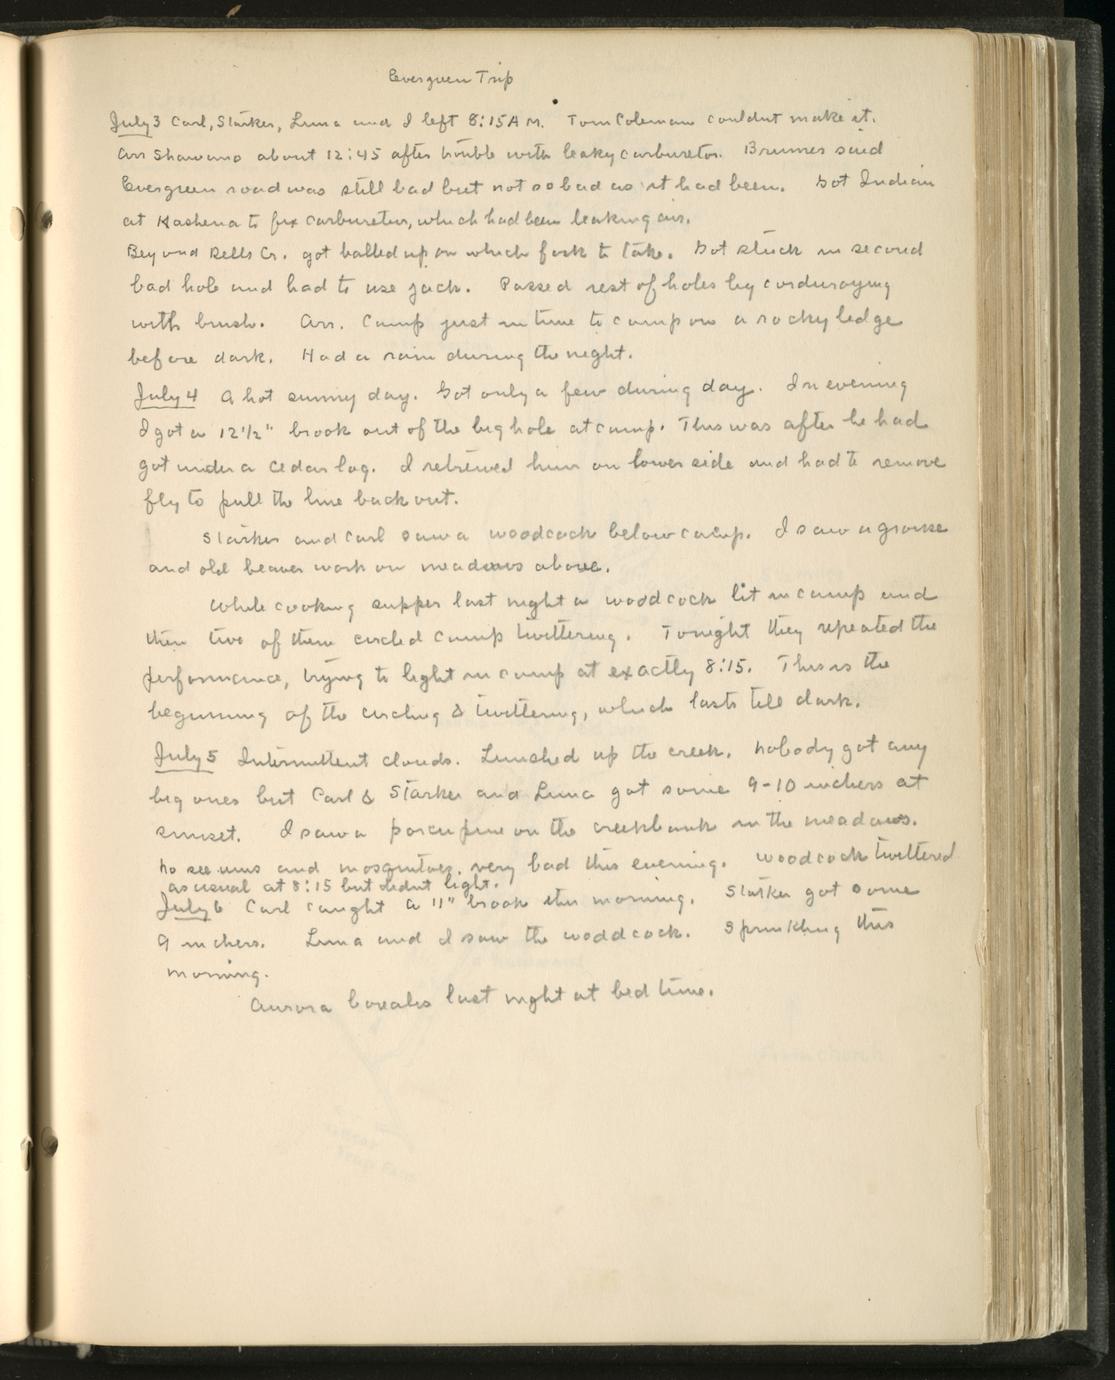 Evergreen Trip
July 3 Carl, Starker, Luna and I left 8:15 A.M. Tom Coleman couldnt make it.
Arr Shawano about 12:45 after trouble with leaky carburetor. Brumer said
Evergreen road was still bad but not so bad as it had been. Got Indian
at Kashena to fix carburetor, which had been leaking air.
Beyond Dells Cr. got balled up on which fork to take. Got stuck in second
bad hole and had to use jack. Passed rest of holes by corduroying
with brush. Arr. Camp just in time to camp on a rocky ledge
before dark. Had a rain during the night.
July 4 A hot sunny day. Got only a few during day. In evening
I got a 12 1/2" brook out of the big hole at camp. This was after he had
got under a cedar log. I retrieved him on lower side and had to remove
fly to pull the line back out.
Starker and Carl saw a woodcock below camp. I saw a grouse
and old beaver work on meadows above.
While cooking supper last night a woodcock lit in camp and
then two of them circled camp twittering. Tonight they repeated the
performance, trying to light in camp at exactly 8:15. This is the
beginning of the circling & twittering, which lasts till dark.
July 5 Intermittent clouds. Lunched up the creek. Nobody got any
big ones but Carl & Starker and Luna got some 9-10 inchers at
sunset. I saw a porcupine on the creekbank in the meadows.
No see ums and mosquitoes very bad this evening. Woodcock twittered
as usual at 8:15 but didnt light.
July 6 Carl caught a 11" brook this morning. Starker got some
9 inchers. Luna and I saw the woddcock. Sprinkling this
morning.
Aurora borealis last night at bed time.